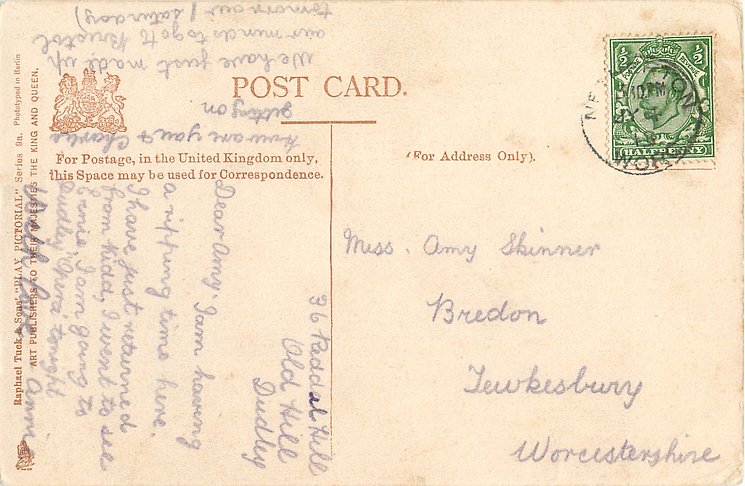 POST CARD.
For Postage, in the United Kingdom only,
this Space may be used for Correspondence.
(For Address Only).
½ ½
HALFPENNY
10.PM
Miss. Amy Skinner
Bredon
Tewkesbury
Worcestershire
36 Reddal Hill
Old Hill
Dudley
Dear Amy. I am having
a ripping time here.
I have just returned
from Kidd, I went to see
Ernie. I am going to
Dudley Opera tonight
With love Annie
How are you & Charles
getting on
We have just made up
our minds to go to Bristol
tomorrow (saturday)
Raphael Tuck & Sons' "PLAY PICTORIAL" Series 9a. Phototyped in Berlin
ART PUBLISHERS TO THEIR MAJESTIES THE KING AND QUEEN.